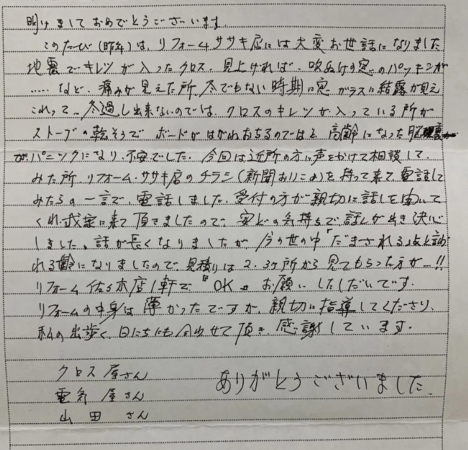 明けましておめでとうございます。
このたび(昨年)は、リフォームササキ店には大変お世話になりました
地震でキレツが入ったクロス、見上げれば、吹ぬけの窓のパッキンが
……など、痛みが見えた所、冬でもない時期に窓がラスに結露が見え
これって…冬過し出来ないのでは、クロスのキレツが入っている所が
ストーブの乾そうで ボードがはがれおちるのではと、高齢になった
がパニックになり、不安でした。今回は近所の方に声をかけて相談して
みた所、リフォーム・ササキ店のチラシ(新聞おりこめ)を持って来て、電話して
みたらの一言で、電話しました。受付の方が親切に話しを聞いて
くれ、査定に来て頂きましたので、安どの気持ちで話しがき決い
しました。話が長くなりましたが、今の世の中「だまされる人と言
れる齢になりましたので、見積りは2、3ヶ所から見てもらった方が…!!
リフォーム 本店1軒で"OK"お願いしただいです。
リフォームの中身は 厚かったですが、親切に指導してくださり、
私の出歩く、日にちにも合わせて頂き、感謝しています。
クロス屋さん
電気屋さん
山田さん
ありがとうございました。